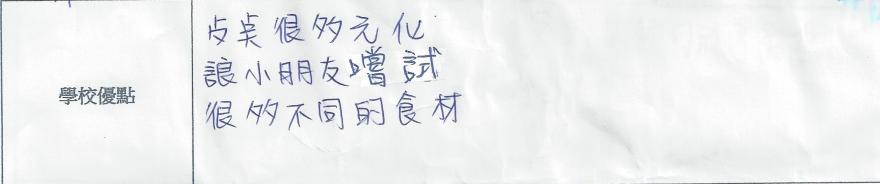 學校優點
占奌很多元化
讓小朋友嚐試
很多不同的食材